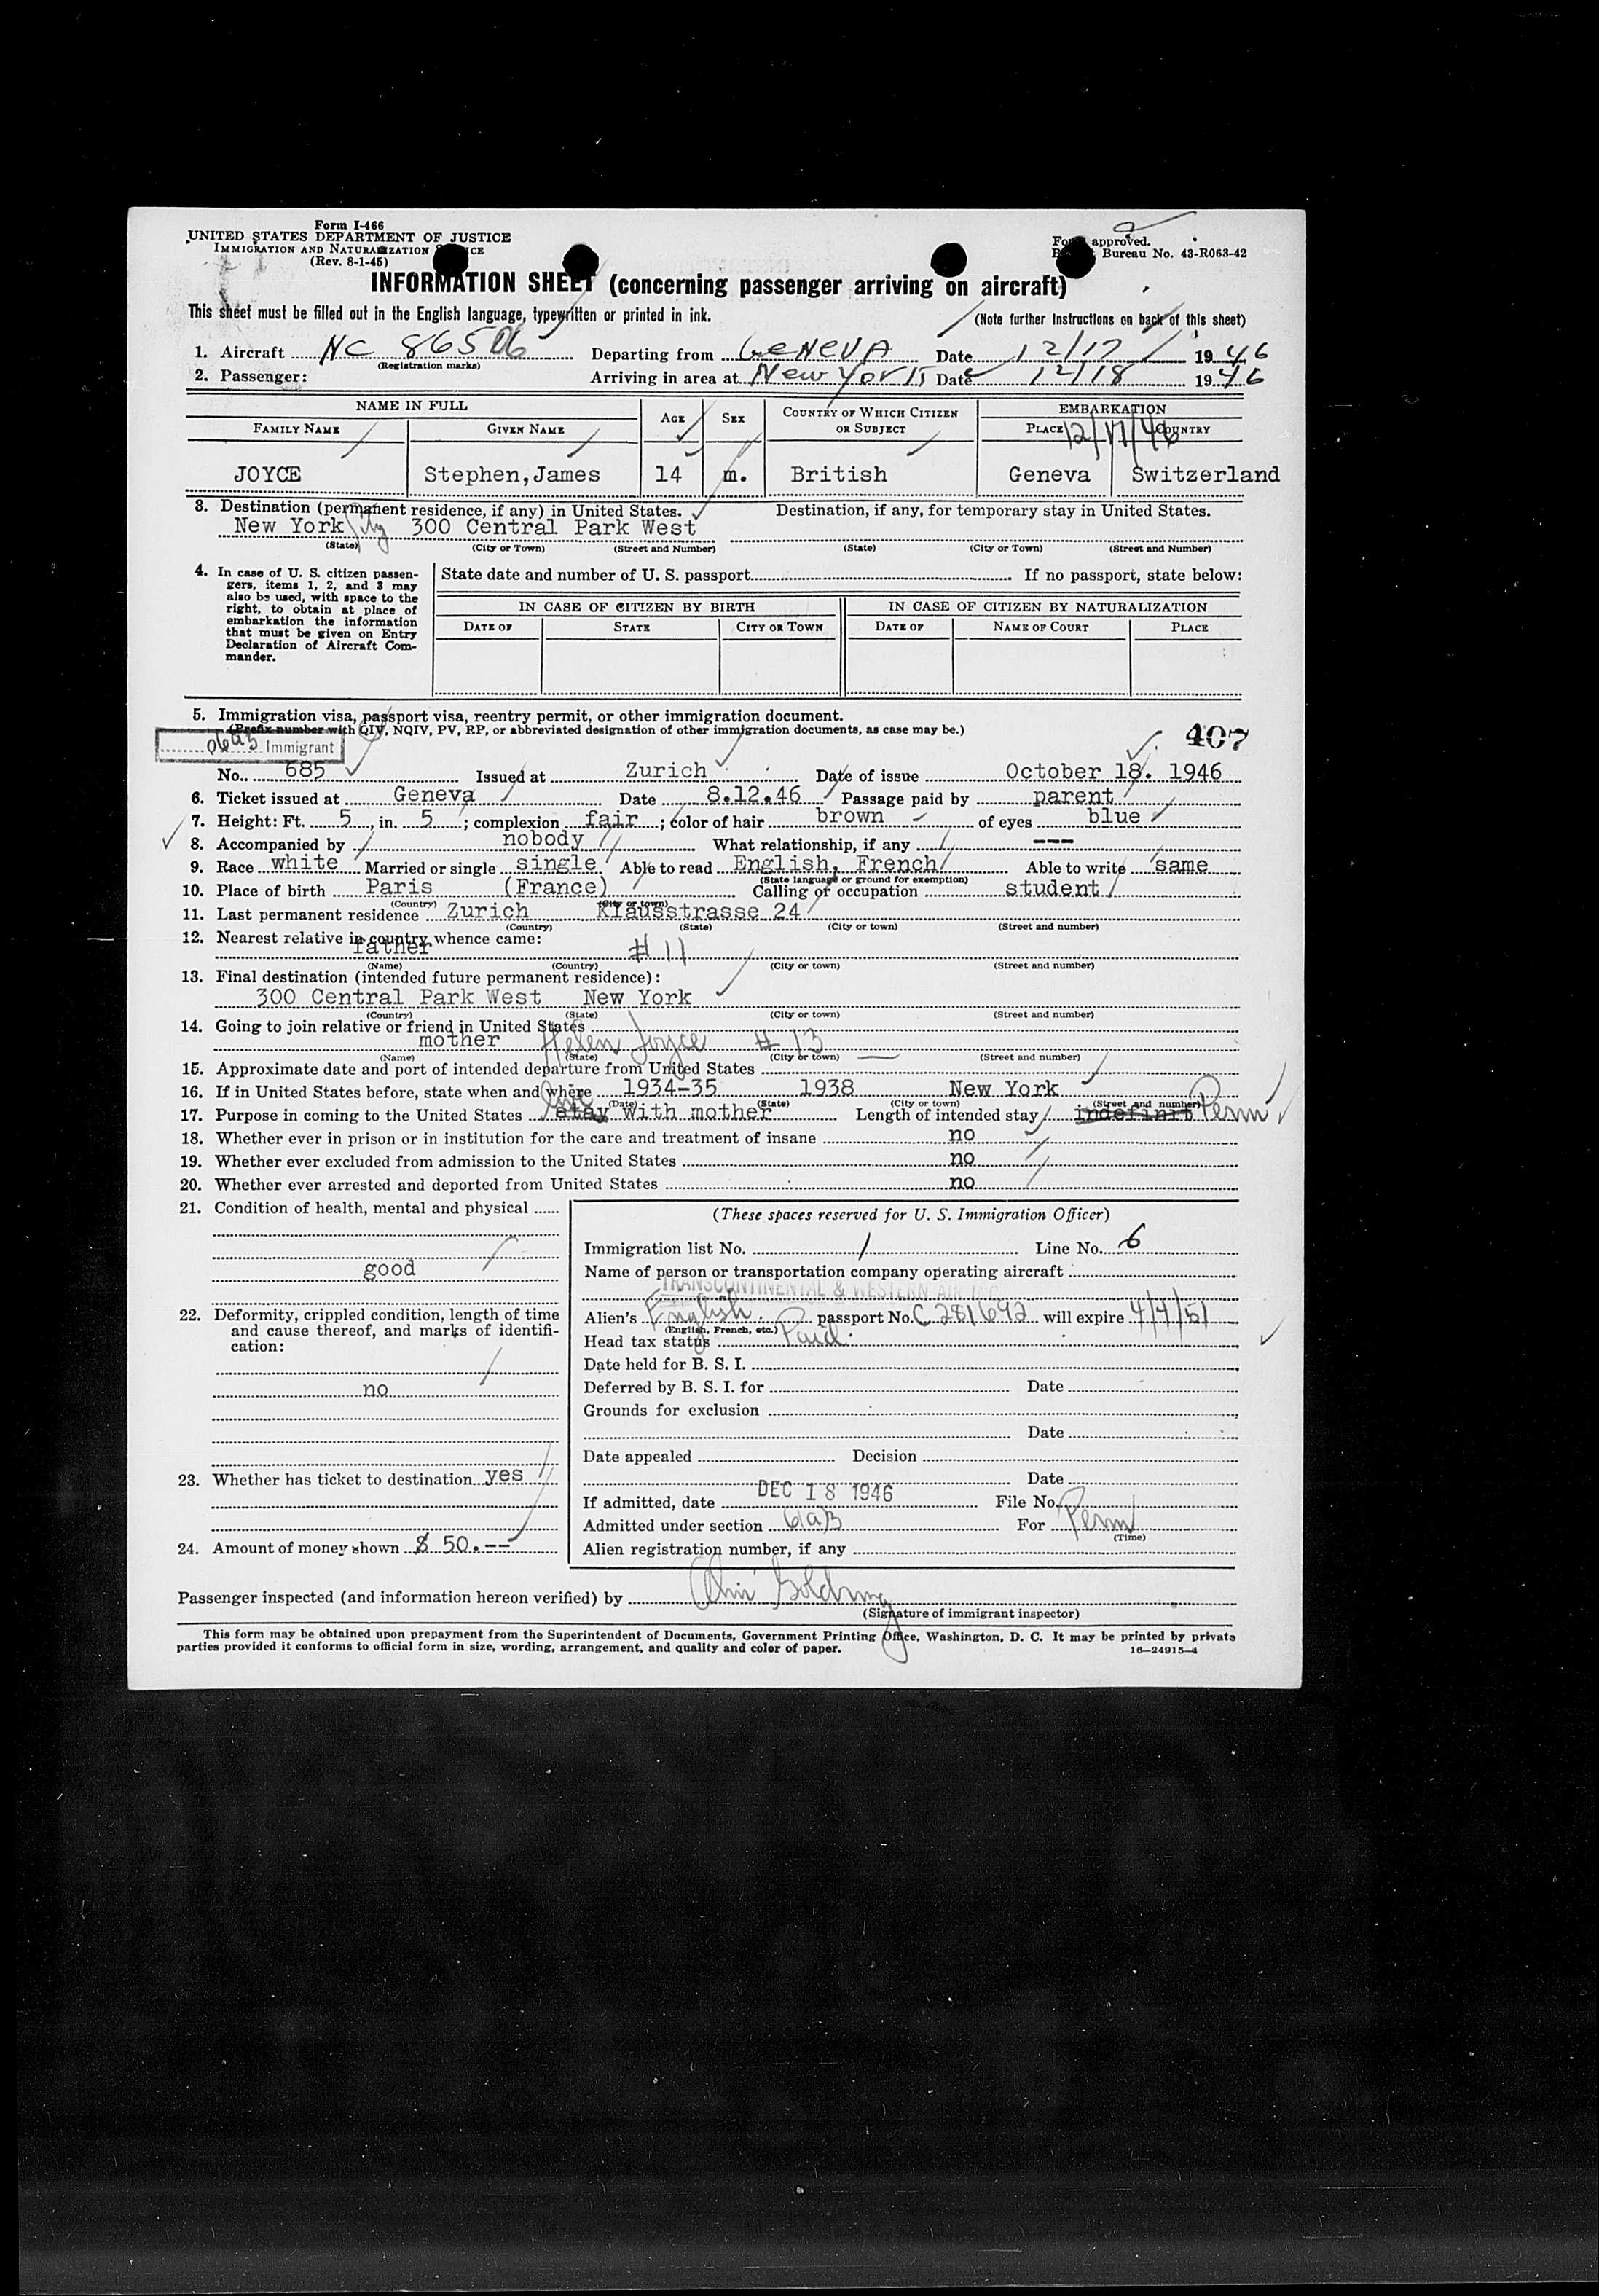 Form I-466
UNITED STATES DEPARTMENT OF JUSTICE
IMMIGRATION AND NATURALIZATION
(Rev. 8-1-45)
approved.
Bureau No. 43-R063-42
INFORMATION SHEET (concerning passenger arriving on aircraft)
This sheet must be filled out in the English language, typewritten or printed in ink.
(Note further instructions on back of this sheet)
1. Aircraft NC 86506 Departing from GENEVA Date 12/17 1946
(Registration marks)
2. Passenger: Arriving in area at New York Date 12/18 1946
NAME IN FULL AGE SEX COUNTRY OF WHICH CITIZEN OR SUBJECT EMBARKATION
FAMILY NAME GIVEN NAME PLACE 12/17/46 COUNTRY
JOYCE Stephen,James 14 m. British Geneva Switzerland
3. Destination (permanent residence, if any) in United States. Destination, if any, for temporary stay in United States.
New York City 300 Central Park West
(State) (City or Town) (Street and Number) (State) (City or Town) (Street and Number)
4. In case of U. S. citizen passen-
gers, items 1, 2, and 3 may
also be used, with space to the
right, to obtain at place of
embarkation the information
that must be given on Entry
Declaration of Aircraft Com-
mander.
State date and number of U. S. passport If no passport, state below:
IN CASE OF CITIZEN BY BIRTH IN CASE OF CITIZEN BY NATURALIZATION
DATE OF STATE CITY OR TOWN DATE OF NAME OF COURT PLACE
5. Immigration visa, passport visa, reentry permit, or other immigration document.
(Prefix number with QIV, NQIV, PV, RP, or abbreviated designation of other immigration documents, as case may be.) 407
Immigrant
No. 685 Issued at Zurich Date of issue October 18. 1946
6. Ticket issued at Geneva Date 8.12.46 Passage paid by parent
7. Height: Ft. 5, in. 5; complexion fair; color of hair brown of eyes blue
8. Accompanied by nobody What relationship, if any ---
9. Race white Married or single single Able to read English, French Able to write same
(State language or ground for exemption)
10. Place of birth Paris (France) Calling or occupation student
(Country) (City or town)
11. Last permanent residence Zurich Klausstrasse 24
(Country) (State) (City or town) (Street and number)
12. Nearest relative in country whence came:
father # 11
(Name) (Country) (City or town) (Street and number)
13. Final destination (intended future permanent residence):
300 Central Park West New York
(Country) (State) (City or town) (Street and number)
14. Going to join relative or friend in United States
mother Helen Joyce # 13
(Name) (State) (City or town) (Street and number)
15. Approximate date and port of intended departure from United States
16. If in United States before, state when and where 1934-35 1938 New York
(Date) (State) (City or town) (Street and number)
17. Purpose in coming to the United States live stay with mother Length of intended stay indefinit Perm
18. Whether ever in prison or in institution for the care and treatment of insane no
19. Whether ever excluded from admission to the United States no
20. Whether ever arrested and deported from United States no
21. Condition of health, mental and physical
good
22. Deformity, crippled condition, length of time
and cause thereof, and marks of identifi-
cation:
no
23. Whether has ticket to destination yes
24. Amount of money shown $ 50.--
(These spaces reserved for U. S. Immigration Officer)
Immigration list No. 1 Line No. 6
Name of person or transportation company operating aircraft
TRANSCONTINENTAL & WESTERN AIR INC.
Alien's English passport No. C 281692 will expire 4/4/51
(English, French, etc.)
Head tax status Paid
Date held for B. S. I.
Deferred by B. S. I. for Date
Grounds for exclusion
Date
Date appealed Decision
Date
If admitted, date DEC 18 1946 File No.
Admitted under section 6a3 For Perm
(Time)
Alien registration number, if any
Passenger inspected (and information hereon verified) by
(Signature of immigrant inspector)
This form may be obtained upon prepayment from the Superintendent of Documents, Government Printing Office, Washington, D. C. It may be printed by private
parties provided it conforms to official form in size, wording, arrangement, and quality and color of paper. 16—24915-4